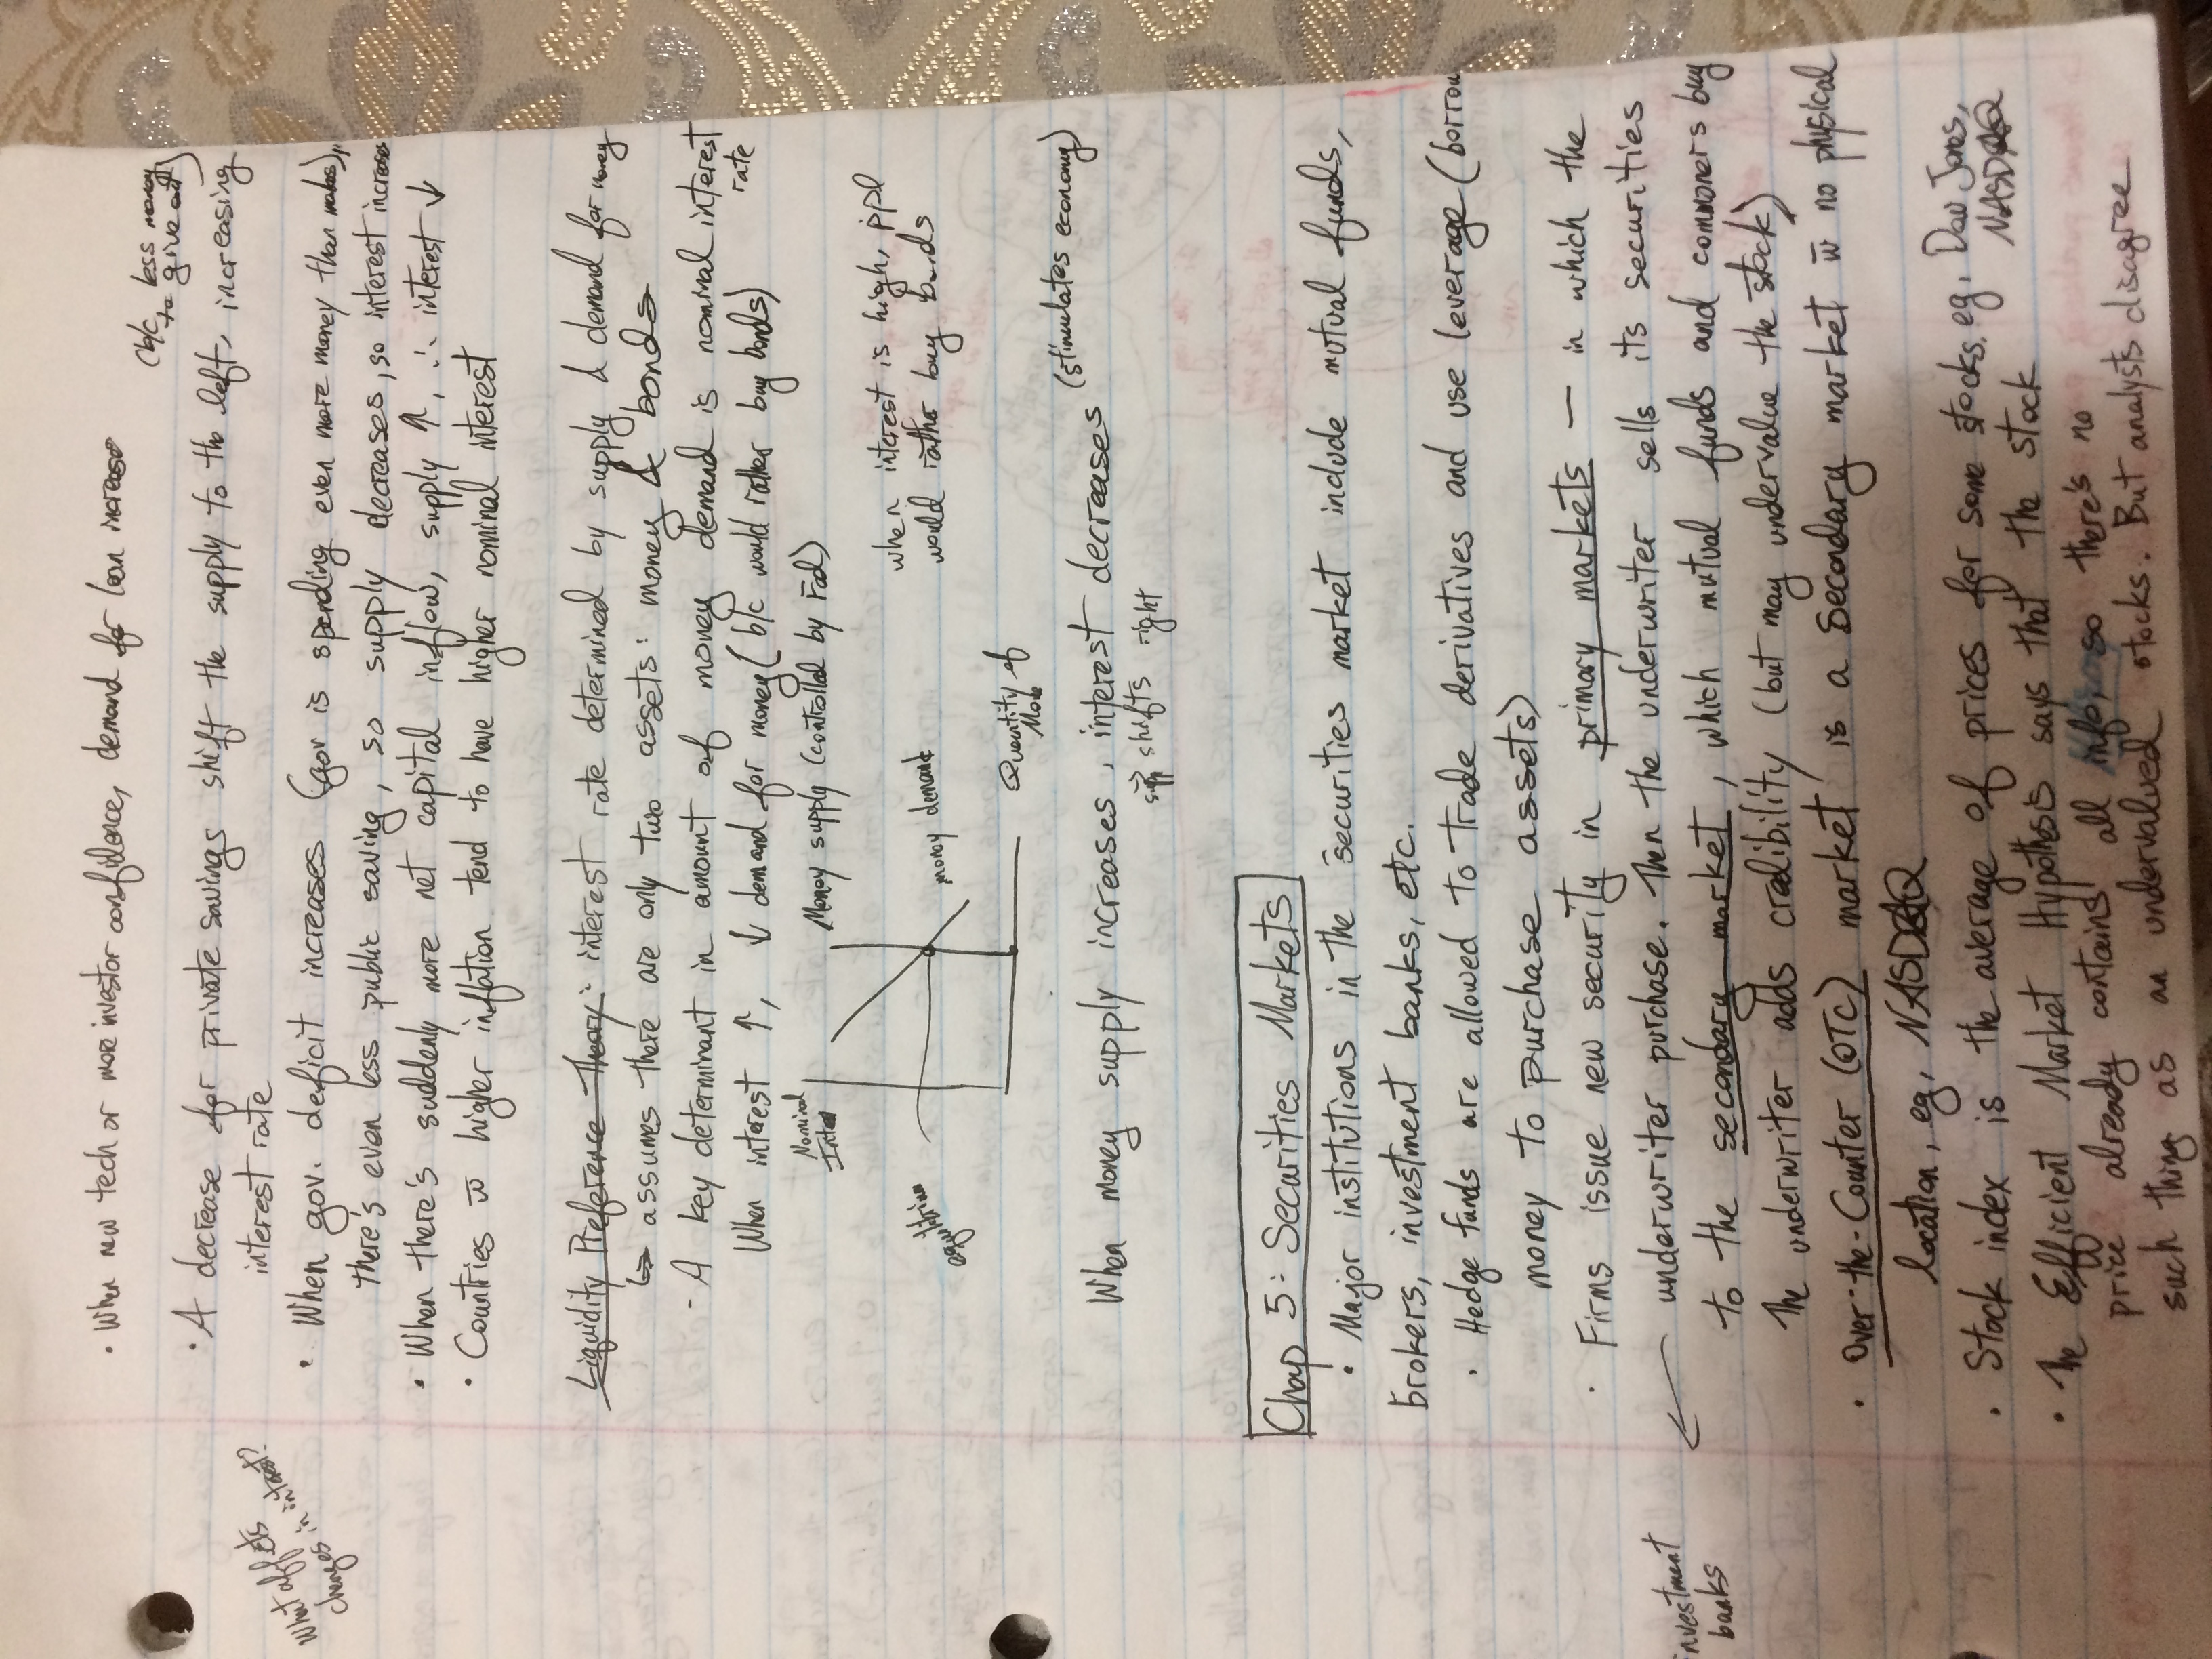 • When new tech or more investor confidence, demand for loan increase
(b/c less money
to give out)
• A decrease for private savings shift the supply to the left, increasing
interest rate
What affects
changes in interest?
• When gov. deficit increases (gov is spending even more money than makes),
there's even less public saving, so supply decreases, so interest increases
• When there's suddenly more net capital inflow, supply ↑, ∴ interest ↓
• Countries w̄ higher inflation tend to have higher nominal interest
Liquidity Preference Theory: interest rate determined by supply & demand for money
↳ assumes there are only two assets: money & bonds
- A key determinant in amount of money demand is nominal interest
rate
When interest ↑, ↓ demand for money (b/c would rather buy bonds)
Nominal
Money supply (controlled by Fed)
when interest is high, ppl
would rather buy bonds
money demand
Quantity of
When money supply increases, interest decreases (stimulates economy)
shifts right
Chap 5: Securities Markets
• Major institutions in the securities market include mutual funds,
brokers, investment banks, etc.
• Hedge funds are allowed to trade derivatives and use leverage (borrow
money to purchase assets)
• Firms issue new security in primary markets — in which the
underwriter purchase. Then the underwriter sells its securities
investment
banks
to the secondary market, which mutual funds and commoners buy
The underwriter adds credibility (but may undervalue the stock)
• Over-the-Counter (OTC) market is a secondary market w̄ no physical
location, eg, NASDAQ
• Stock index is the average of prices for some stocks. eg. Dow Jones,
NASDAQ
• The Efficient Market Hypothesis says that the stock
price already contains all info, so there's no
such thing as an undervalued stocks. But analysts disagree